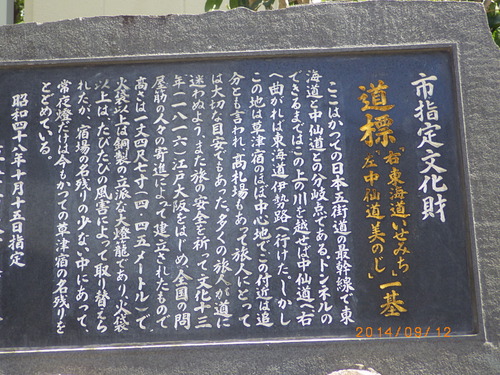 市指定文化財
道標 右東海道いせみち 左中仙道美のじ 一基
ここはかつての日本五街道の最幹線で東
海道と中仙道との分岐点である。トンネルの
できるまではこの上の川を越せば中仙道へ右
へ曲がれば東海道伊勢路へ行けた。しかし
この地は草津宿のほぼ中心地でこの付近は追
分とも言われ、高札場もあって旅人にとって
は大切な目安でもあった。多くの旅人が道に
迷わぬよう、また旅の安全を祈って文化十三
年(一八一六)江戸大阪をはじめ、全国の問
屋筋の人々の寄進によって建立されたもので
高さは一丈四尺七寸(四・四五メートル)で、
火袋以上は銅製の立派な大燈籠であり、火袋
以上は、たびたびの風害によって取り替えら
れたが、宿場の名残りの少ない中にあって、
常夜燈だけは今もかつての草津宿の名残りを
とどめている。
昭和四十八年十月十五日指定
2014/09/12